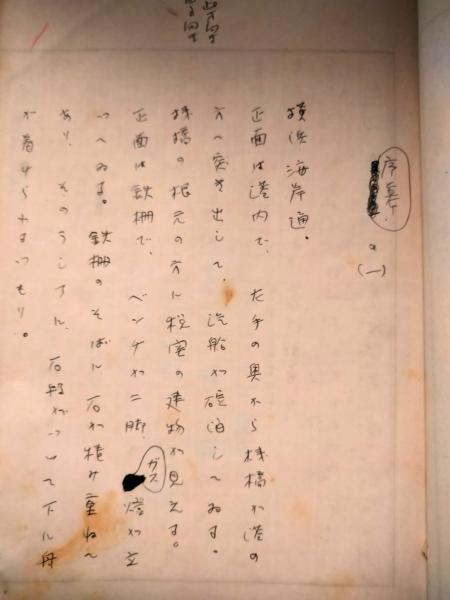 序幕、の(一)
横浜海岸通。
正面は港内で、左手の奥から桟橋が港の
方へ突き出して、汽船が碇泊してゐる。
桟橋の根元の方に税関の建物が見える。
正面は鉄柵で、ベンチが二脚、ガス燈が立
つてゐる。鉄柵のそばに石が積み重ねて
あり、そのうしろに、石段がついて下に舟
が着けられるつもり。